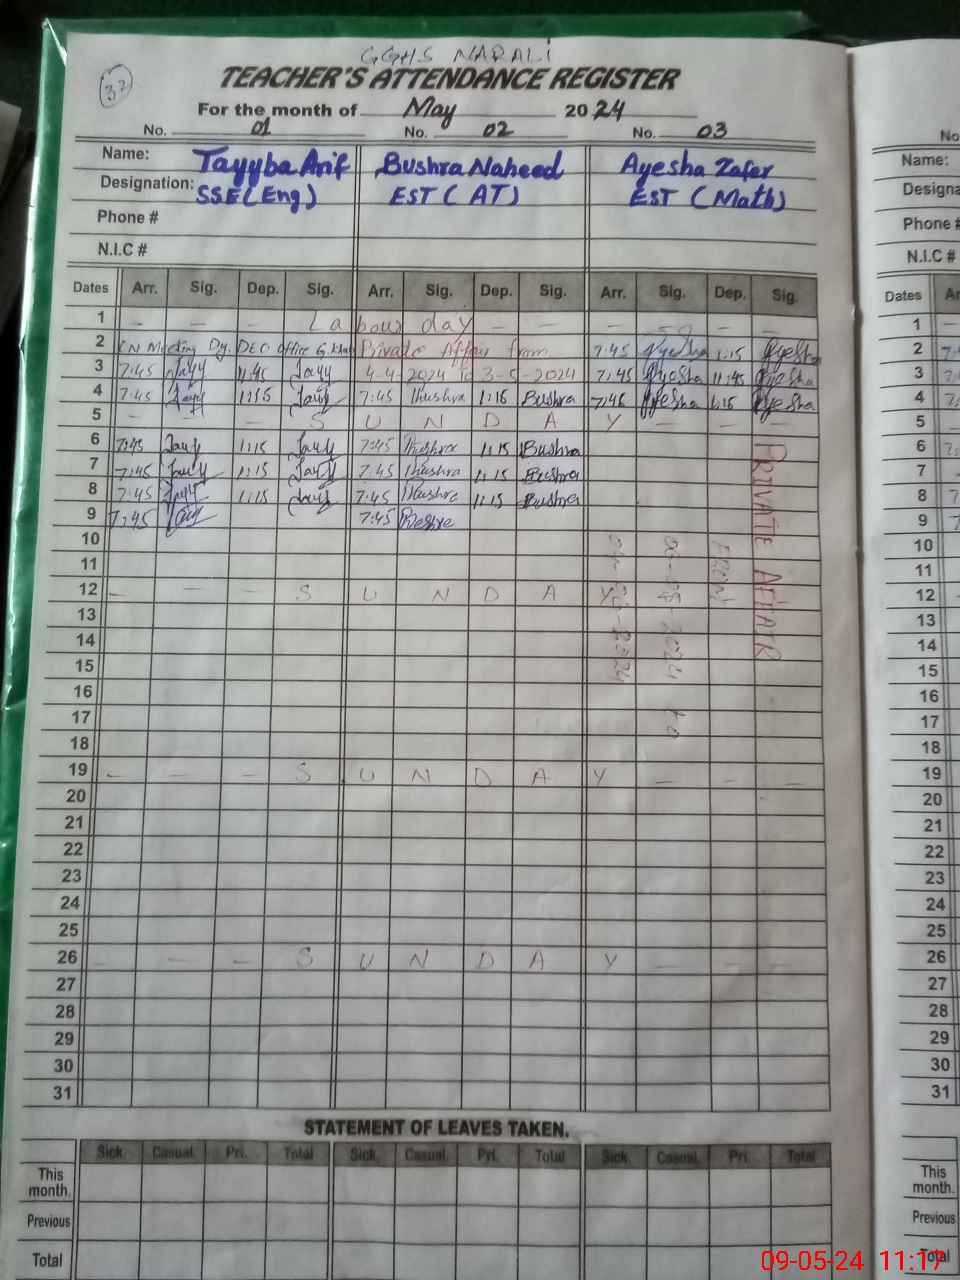 GGHS NARALI
37
TEACHER'S ATTENDANCE REGISTER
For the month of May 2024
No. 01 No. 02 No. 03 No
Name: Tayyba Arif Bushra Naheed Ayesha Zafer Name:
Designation: SSE (Eng) EST (AT) EST (Math) Designa
Phone # Phone #
N.I.C # N.I.C #
Dates Arr. Sig. Dep. Sig. Arr. Sig. Dep. Sig. Arr. Sig. Dep. Sig. Dates Ar
1 – – – Labour day – – – – – 1
2 ON Meeting Dy. DEO Office Private Affair from 7:45 Ayesha 1:15 Ayesha 2
3 7:45 Tayy 11:45 Tayy 4-4-2024 To 3-5-2024 7:45 Ayesha 11:45 Ayesha 3
4 7:45 Tayy 1:15 Tayy 7:45 Bushra 1:15 Bushra 7:45 Ayesha 1:15 Ayesha 4
5 – – – S U N D A Y – – – 5
6 7:45 Tayy 1:15 Tayy 7:45 Bushra 1:15 Bushra 6
7 7:45 Tayy 1:15 Tayy 7:45 Bushra 1:15 Bushra 7
8 7:45 Tayy 1:15 Tayy 7:45 Bushra 1:15 Bushra 8
9 7:45 Tayy 7:45 Bushra 9
PRIVATE AFFAIR
FROM
2024 to
2024
10 10
11 11
12 – – – S U N D A Y 12
13 13
14 14
15 15
16 16
17 17
18 18
19 – – – S U N D A Y – – – 19
20 20
21 21
22 22
23 23
24 24
25 25
26 – – – S U N D A Y – – – 26
27 27
28 28
29 29
30 30
31 31
STATEMENT OF LEAVES TAKEN.
Sick Casual Pri. Total Sick. Casual. Pri. Total Sick. Casual. Pri. Total
This month. This month.
Previous Previous
Total Total
09-05-24 11:17